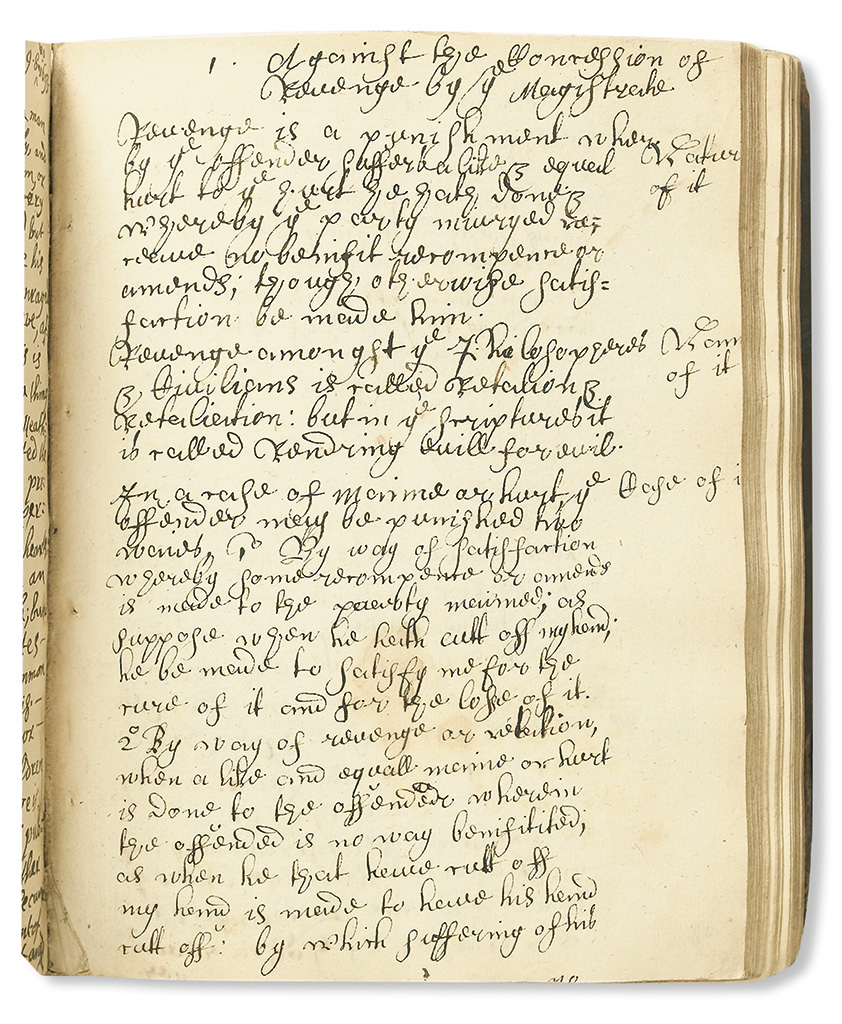 1. Against the Concession of
Revenge by yͤ Magistrate
Revenge is a punishment wher
by yͤ offender suffers a like & equal
hurt to yͤ hurt he hath done &
Natur
of it
whereby yͤ party iniuryed re=
ceaue no benifit recompence or
amends; though otherwise satis=
faction be made him.
Revenge amongst yͤ Philosophers
& Ciuilians is called Retalion &
Nam
of it
Retaliation: but in yͤ scriptures it
is called Rendring euill for euil.
In a case of maime or hurt, yͤ
Case of i
offender may be punished two
waies, 1º By way of satisfaction
whereby some recompence or amends
is made to the paerty maimed; as
suppose when he hath cutt off my hand;
he be made to satisfy me for the
cure of it and for the lose of it.
2º By way of revenge or retalion,
when a like and equall maime or hurt
is done to the offender wherein
the offended is no way benifitted;
as when he that haue cutt off
my hand is made to haue his hand
cutt off: by which suffering of his